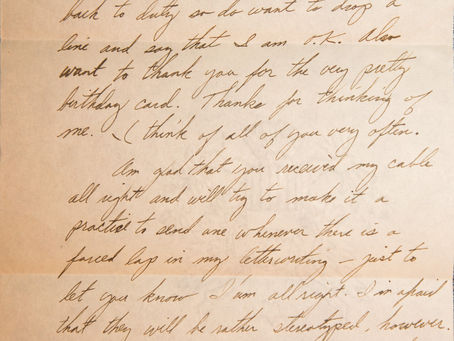 back to duty so do want to drop a
line and say that I am O.K. Also
want to thank you for the very pretty
birthday card. Thanks for thinking of
me. I think of all of you very often.
Am glad that you received my cable
all right and will try to make it a
practice to send one whenever there is a
forced lap in my letterwriting – just to
let you know I am all right. I'm afraid
that they will be rather stereotyped, however.